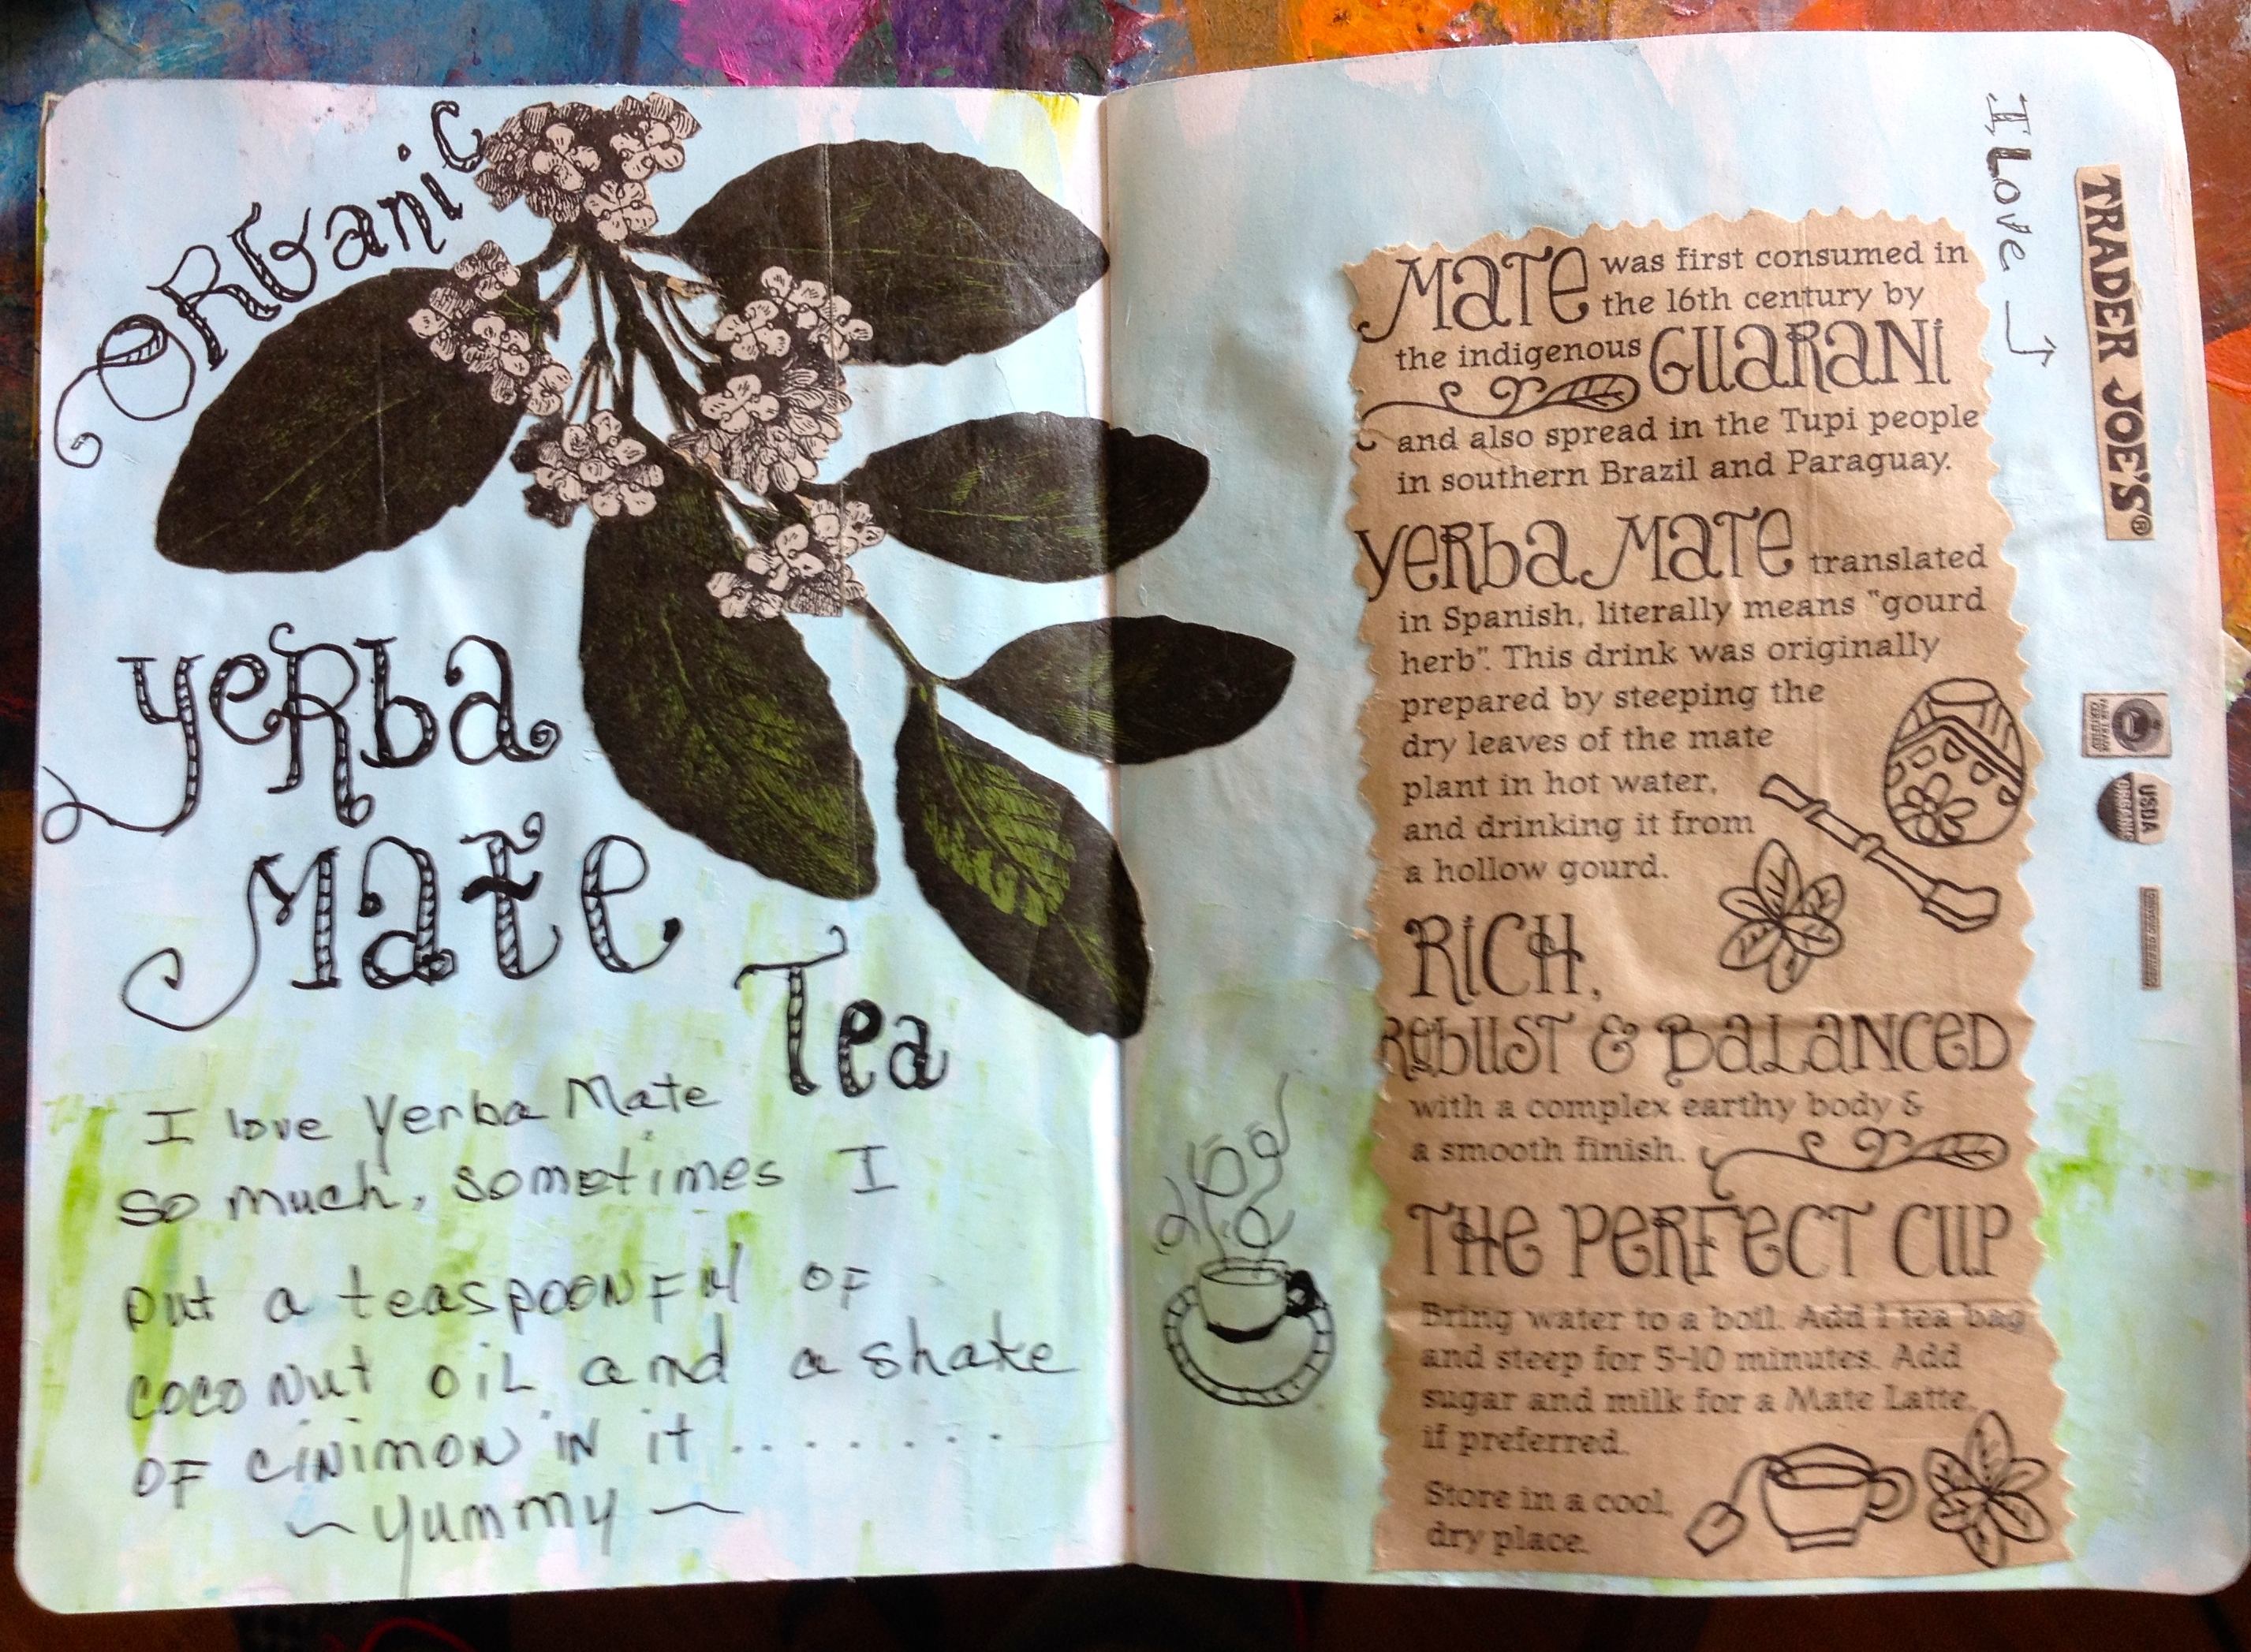 Organic
Yerba
Mate
Tea
I love Yerba Mate
so much, sometimes I
put a teaspoonful of
coconut oil and a shake
of cinimon in it ........
~ Yummy ~
I Love
TRADER JOE'S®
MATE was first consumed in
the 16th century by
the indigenous GUARANI
and also spread in the Tupi people
in southern Brazil and Paraguay.
YERBA MATE translated
in Spanish, literally means "gourd
herb". This drink was originally
prepared by steeping the
dry leaves of the mate
plant in hot water,
and drinking it from
a hollow gourd.
RICH,
ROBUST & BALANCED
with a complex earthy body &
a smooth finish.
THE PERFECT CUP
Bring water to a boil. Add 1 tea bag
and steep for 5-10 minutes. Add
sugar and milk for a Mate Latte,
if preferred.
Store in a cool,
dry place.
FAIR TRADE
CERTIFIED
USDA
ORGANIC